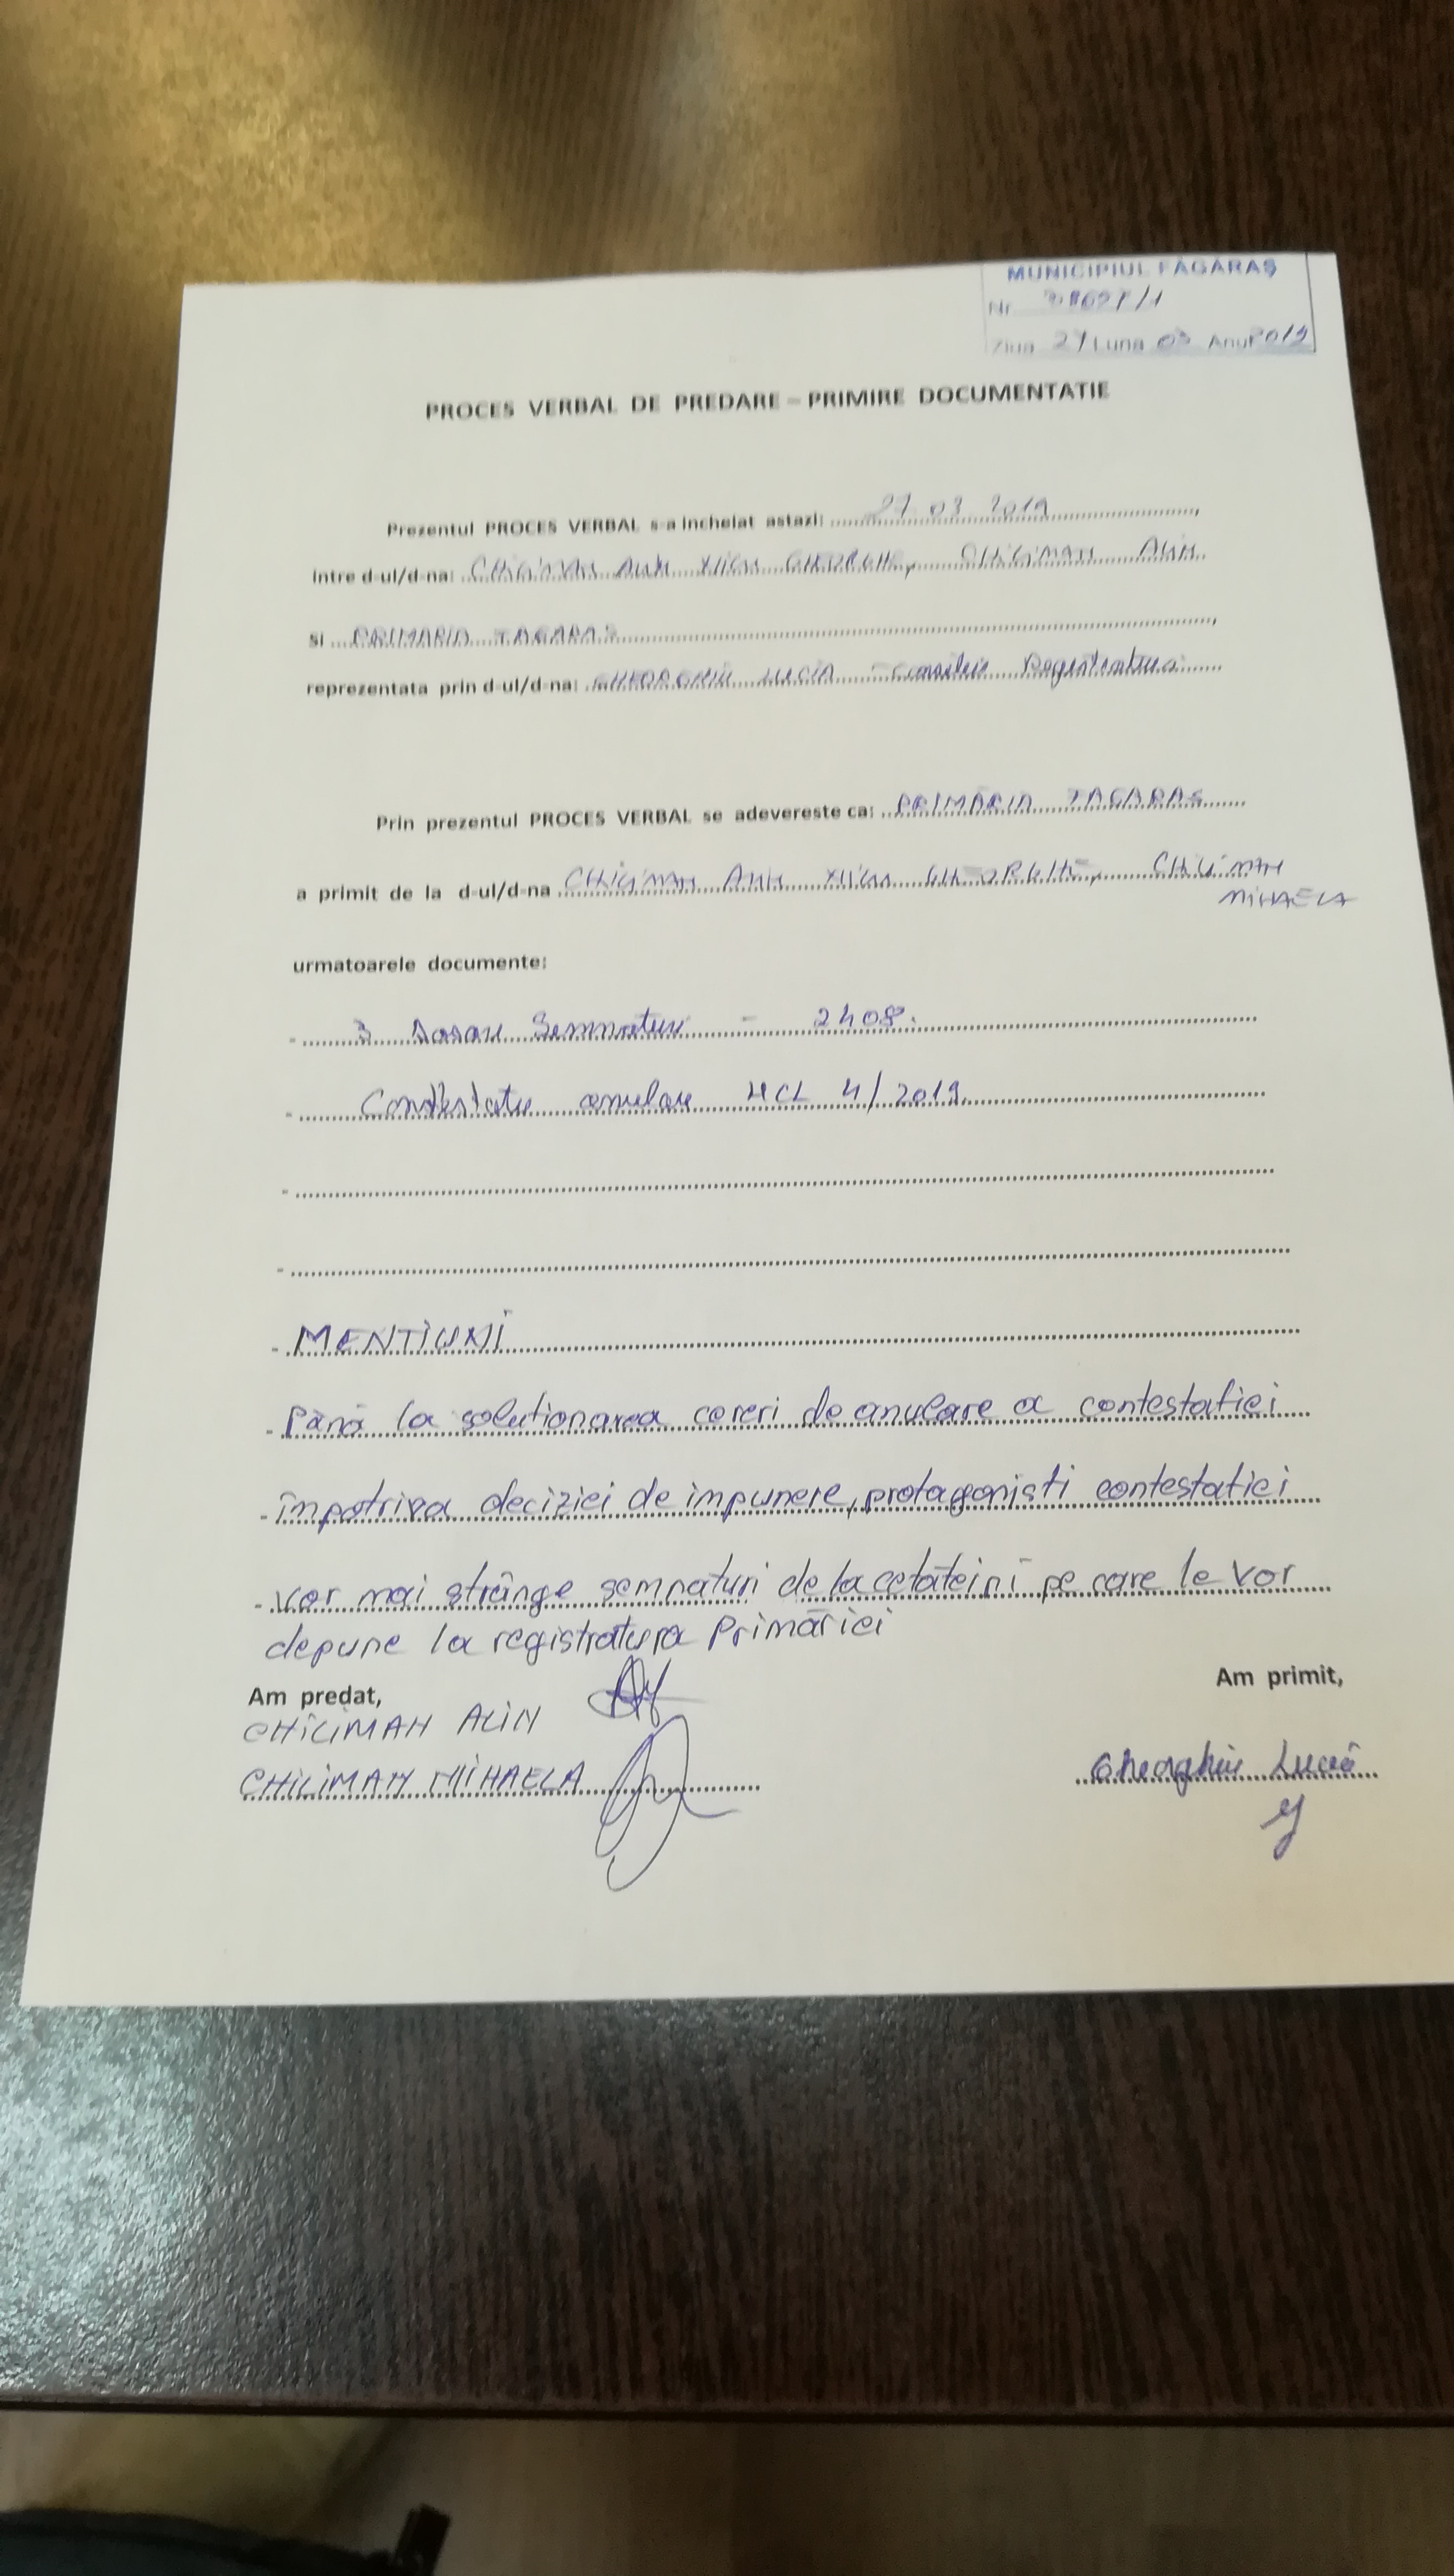 MUNICIPIUL FĂGĂRAŞ
Nr
Ziua 27 Luna 03 Anul 2019
PROCES VERBAL DE PREDARE – PRIMIRE DOCUMENTATIE
Prezentul PROCES VERBAL s-a incheiat astazi: 27 03 2019
intre d-ul/d-na: CHILIMAN
si PRIMARIA FAGARAS
reprezentata prin d-ul/d-na: GHEORGHIU LUCIA - Registratura
Prin prezentul PROCES VERBAL se adevereste ca: PRIMĂRIA FAGARAS
a primit de la d-ul/d-na CHILIMAN GHEORGHE, CHILIMAN
MIHAELA
urmatoarele documente:
- 3 Dosare Semnaturi - 2408.
- Contestatie anulare HCL 4/2019.
-
-
- MENTIUNI
- Până la solutionarea cereri de anulare a contestatiei
- împotriva deciziei de impunere, protagonisti contestatiei
- vor mai strânge semnaturi de la cetăteini pe care le vor
depune la registratura Primăriei
Am predat,
Am primit,
CHILIMAN ALIN
CHILIMAN MIHAELA
Gheorghiu Lucia